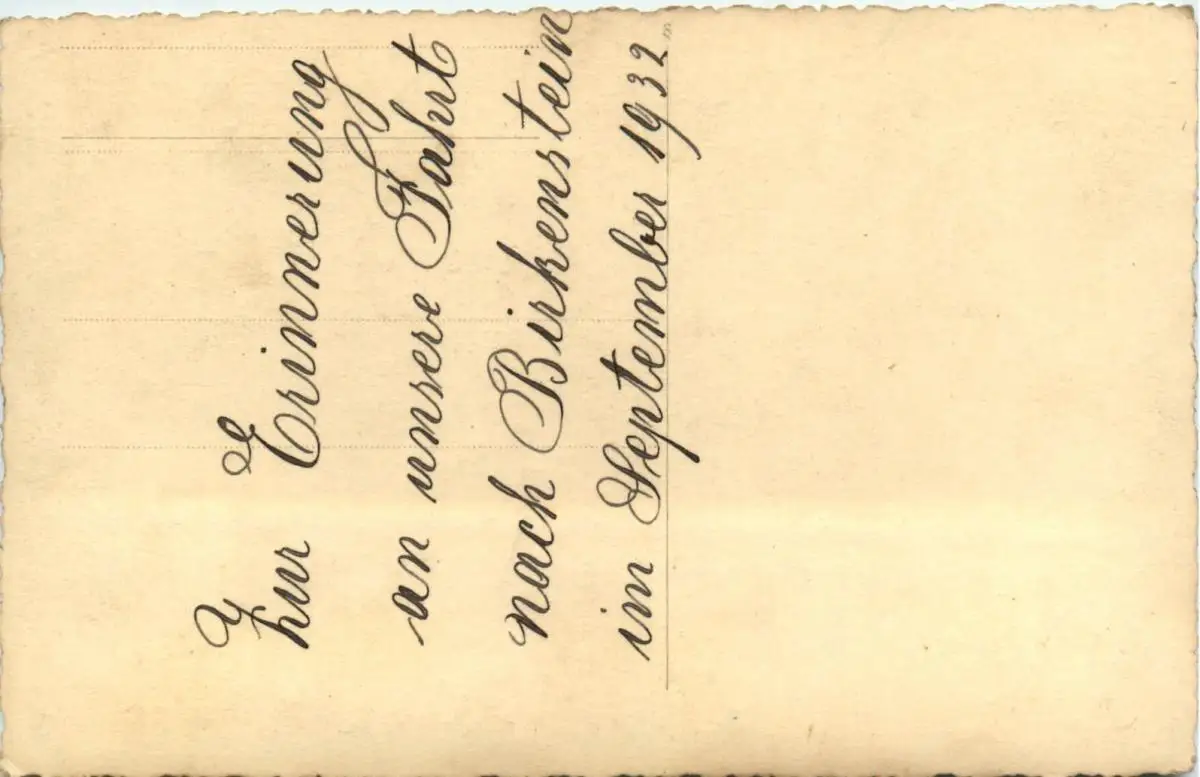 Zur Erinnerung
an unsere Fahrt
nach Birkenstein
im September 1932